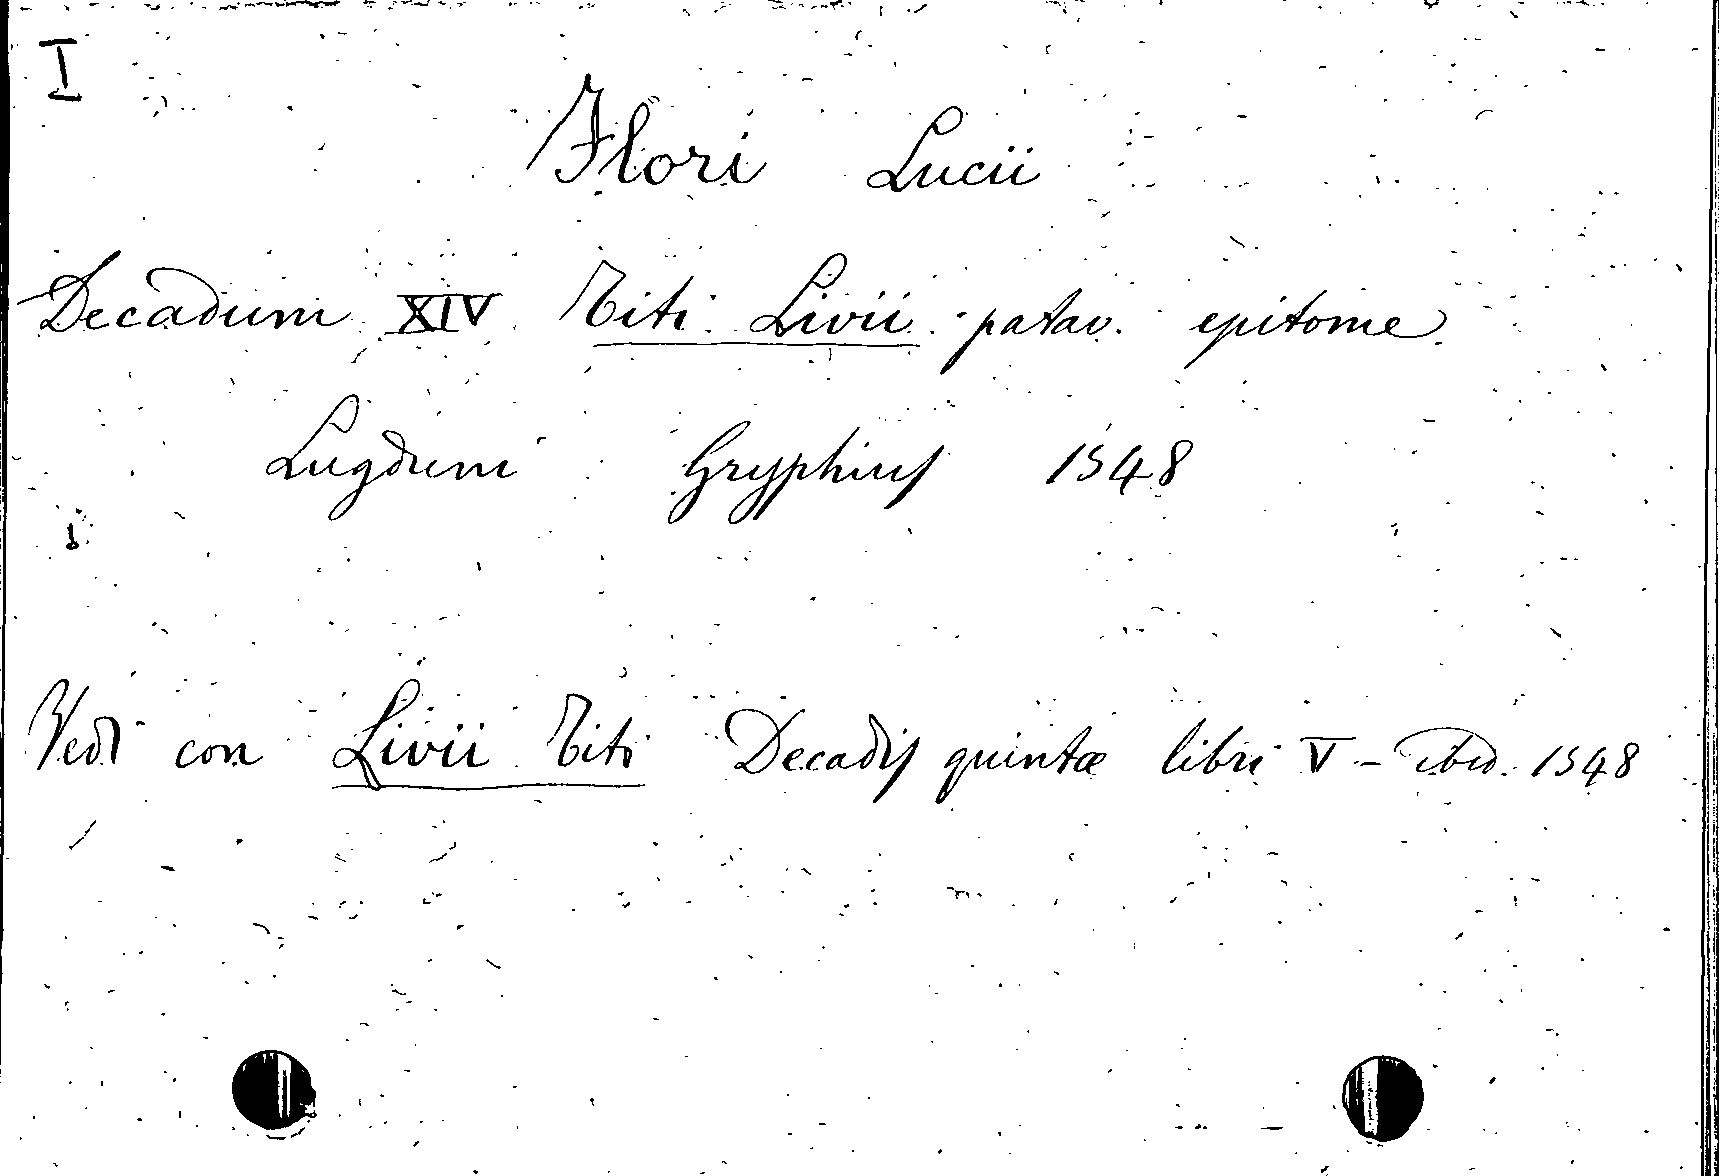 I
Flori Lucii
Decadum XIV Titi Livii patav. epitome
Lugduni Gryphius 1548
Vedi con Livii Titi Decadis quintæ libri V - ibid. 1548